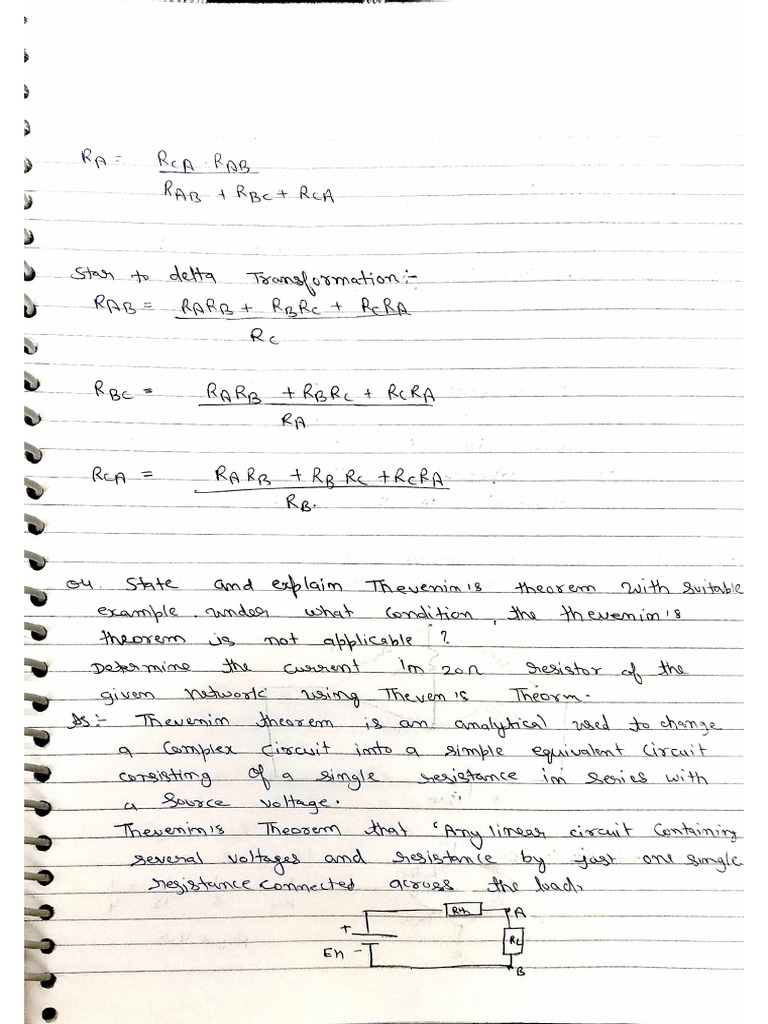 RA = RCA . RAB
RAB + RBC + RCA
Star to delta Transformation:-
RAB = RARB + RBRC + RCRA
RC
RBC = RARB + RBRC + RCRA
RA
RCA = RARB + RB RC + RCRA
RB.
04. State and explaim Thevenim's theorem with suitable
example. under what condition, the thevenim's
theorem is not applicable ?
Determine the current im 20Ω resistor of the
given network using Theven's Theorm.
As:- Thevenim theorem is an analytical used to change
a complex circuit imto a simple equivalent circuit
consisting of a single resistance im series with
a source voltage.
Thevenim's Theorem that "Any linear circuit containing
several voltages and resistance by just one single
resistance connected across the load.
Rth A
+
RL
Eh -
B